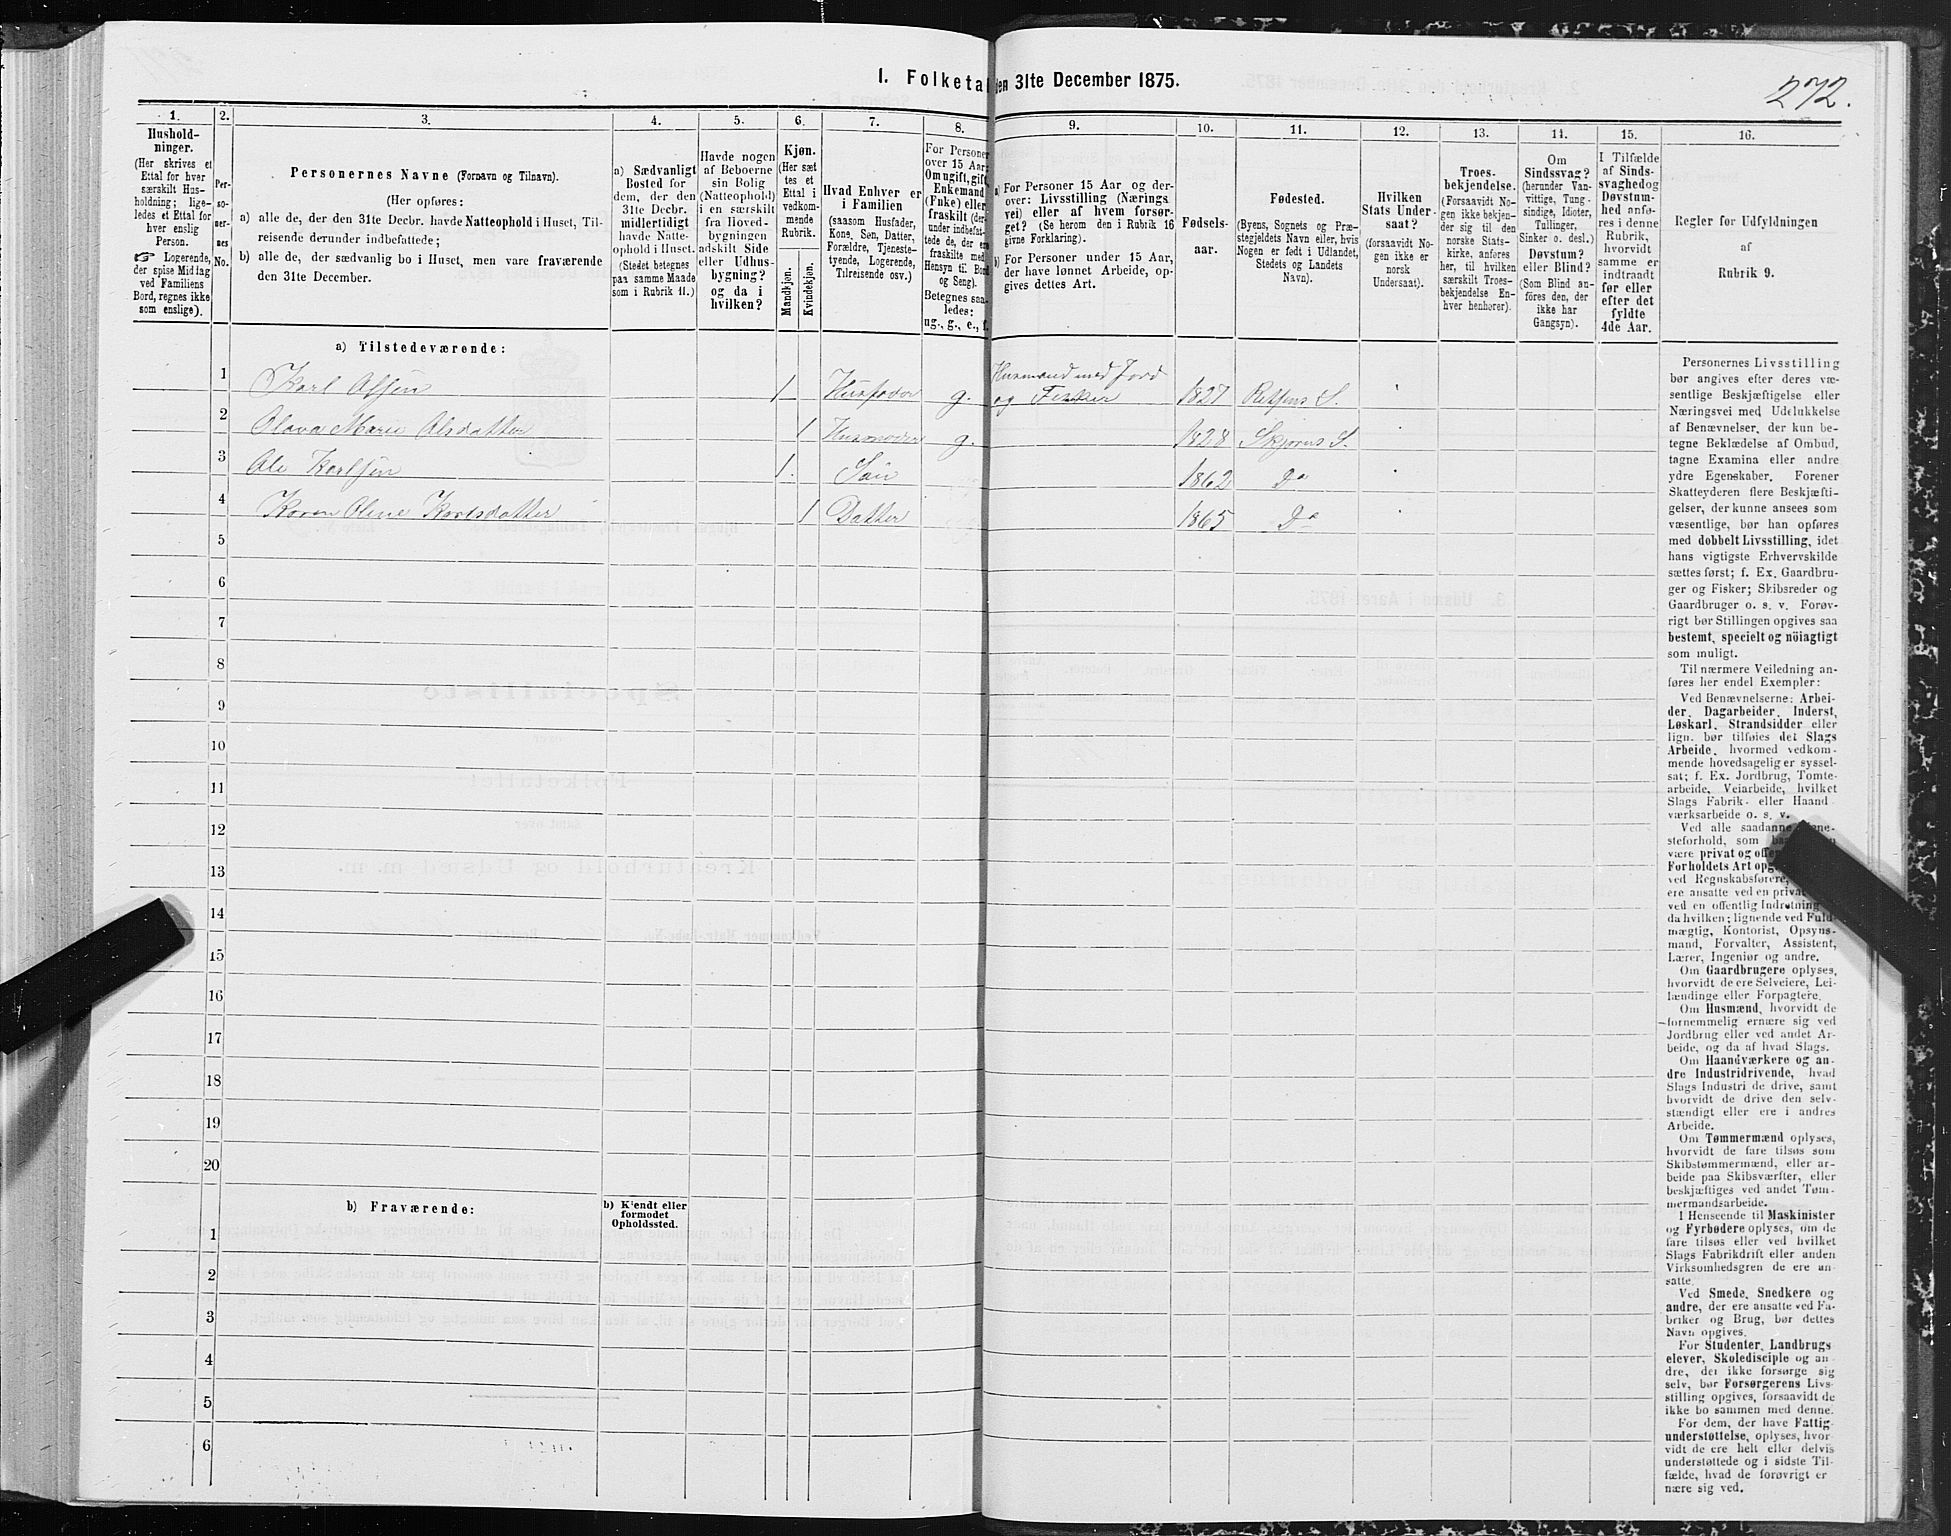 272.
I. Folketal den 31te December 1875.
1.
Hushold-
ninger.
(Her skrives et
Ettal for hver
særskilt Hus-
holdning; lige-
ledes et Ettal for
hver enslig
Person.
☞ Logerende,
der spise Middag
ved Familiens
Bord, regnes ikke
som enslige).
2.
Per-
so-
ner-
nes
No.
3.
Personernes Navne (Fornavn og Tilnavn).
(Her opføres:
a) alle de, der den 31te Decbr. havde Natteophold i Huset, Til-
reisende derunder indbefattede;
b) alle de, der sædvanlig bo i Huset, men vare fraværende
den 31te December.
4.
a) Sædvanligt
Bosted for
dem, der den
31te Decbr.
midlertidigt
havde Natte-
ophold i Huset.
(Stedet betegnes
paa samme Maade
som i Rubrik 11.)
5.
Havde nogen
af Beboerne
sin Bolig
(Natteophold)
i en særskilt
fra Hoved-
bygningen
adskilt Side
eller Udhus-
bygning?
og da i
hvilken?
6.
Kjøn.
(Her sæt
tes et
Ettal i
vedkom-
mende
Rubrik.
Mandkjøn.
Kvindekjøn.
7.
Hvad Enhver er
i Familien
(saasom Husfader,
Kone, Søn, Datter,
Forældre, Tjeneste-
tyende, Logerende,
Tilreisende osv.)
8.
For Personer
over 15 Aar:
Om ugift, gift,
Enkemand
(Enke) eller
fraskilt (der-
under indbefat-
tede de, der ere
fraskilte med
Hensyn til Bord
og Seng).
Betegnes saa-
ledes:
ug., g., e., f.
9.
a) For Personer 15 Aar og der-
over: Livsstilling (Nærings
vei) eller af hvem forsør-
get? (Se herom den i Rubrik 16
givne Forklaring).
b) For Personer under 15 Aar,
der have lønnet Arbeide, op-
gives dettes Art.
10.
Fødsels-
aar.
11.
Fødested.
(Byens, Sognets og Præ-
stegjeldets Navn eller, hvis
Nogen er født i Udlandet,
Stedets og Landets
Navn).
12.
Hvilken
Stats Under-
saat?
(forsaavidt No-
gen ikke er
norsk
Undersaat).
13.
Troes-
bekjendelse.
(Forsaavidt No-
gen ikke bekjen-
der sig til den
norske Stats-
kirke, anføres
her, til hvilken
særskilt Troes-
bekjendelse En-
hver henhører).
14.
Om
Sindssvag?
(herunder Van-
vittige, Tung-
sindige, Idioter,
Tullinger,
Sinker o. desl.)
Døvstum?
eller Blind?
(Som Blind an-
føres den, der
ikke har
Gangsyn).
15.
I Tilfælde
af Sinds-
svaghed og
Døvstum-
hed anfø-
res i denne
Rubrik,
hvorvidt
samme er
indtraadt
før eller
efter det
fyldte
4de Aar.
16.
Regler for Udfyldningen
af
Rubrik 9.
a) Tilstedeværende:
1 Karl Olsen 1 Husfader g. Husmand med Jord
og Fisker 1827 Reitsens S.
2 Olava Marie Olsdatter 1 Husmoder g. 1828 Skjørns S.
3 Ole Karlsen 1. Søn 1862 Do
4 Karen Oline Karlsdatter 1 Datter 1865 Do
5
6
7
8
9
10
11
12
13
14
15
16
17
18
19
20
b) Fraværende:
b) Kjendt eller
formodet
Opholdssted.
1
2
3
4
5
6
Personernes Livsstilling
bør angives efter deres væ-
sentlige Beskjæftigelse eller
Næringsvei med Udelukkelse
af Benævnelser, der kun be-
tegne Beklædelse af Ombud,
tagne Examina eller andre
ydre Egenskaber. Forener
Skatteyderen flere Beskjæfti-
gelser, der kunne ansees som
væsentlige, bør han opføres
med dobbelt Livsstilling, idet
hans vigtigste Erhvervskilde
sættes først; f. Ex. Gaardbru-
ger og Fisker; Skibsreder og
Gaardbruger o. s. v. Forøv-
rigt bør Stillingen opgives saa
bestemt, specielt og nöiagtigt
som muligt.
Til nærmere Veiledning an-
føres her endel Exempler:
Ved Benævnelserne: Arbei-
der, Dagarbeider, Inderst,
Løskarl, Strandsidder eller
lign. bør tilføies det Slags
Arbeide, hvormed vedkom-
mende hovedsagelig er syssel-
sat; f. Ex. Jordbrug, Tomte-
arbeide, Veiarbeide, hvilket
Slags Fabrik- eller Haand-
værksarbeide o. s. v.
Ved alle saadanne
steforhold, som
være privat og
Forholdets Art
ved Regnskabsførere,
ere ansatte ved en privat
ved en offentlig Indretning
da hvilken; lignende ved Fuld-
mægtig, Kontorist, Opsyns-
mand, Forvalter, Assistent,
Lærer, Ingeniør og andre.
Om Gaardbrugere oplyses,
hvorvidt de ere Selveiere, Lei-
lændinge eller Forpagtere.
Om Husmænd, hvorvidt de
fornemmelig ernære sig ved
Jordbrug eller ved andet Ar-
beide, og da af hvad Slags.
Om Haandværkere og an-
dre Industridrivende, hvad
Slags Industri de drive, samt
hvorvidt de drive den selv-
stændigt eller ere i andres
Arbeide.
Om Tømmermænd oplyses,
hvorvidt de fare tilsøs som
Skibstømmermænd, eller ar-
beide paa Skibsværfter, eller
beskjæftiges ved andet Tøm-
mermandsarbeide.
I Henseende til Maskinister
og Fyrbødere oplyses, om de
fare tilsøs eller ved hvilket
Slags Fabrikdrift eller anden
Virksomhedsgren de ere an-
satte.
Ved Smede, Snedkere og
andre, der ere ansatte ved Fa-
briker og Brug, bør dettes
Navn opgives.
For Studenter, Landbrugs
elever, Skoledisciple og an-
dre, der ikke forsørge sig
selv, bør Forsørgerens Livs-
stilling opgives, forsaavidt de
ikke bo sammen med denne.
For dem, der have Fattig-
understøttelse, oplyses, hvor-
vidt de ere helt eller delvis
understøttede og i sidste Til-
fælde, hvad de forøvrigt er
nære sig ved.